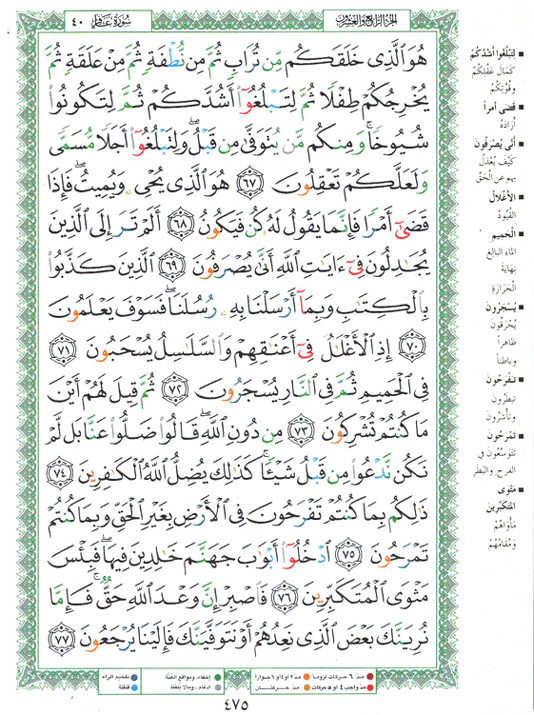 الجزء الرابع والعشرون
سورة غافر ٤٠
هُوَ الَّذِي خَلَقَكُم مِّن تُرَابٍ ثُمَّ مِن نُّطْفَةٍ ثُمَّ مِنْ عَلَقَةٍ ثُمَّ
يُخْرِجُكُمْ طِفْلًا ثُمَّ لِتَبْلُغُوٓا۟ أَشُدَّكُمْ ثُمَّ لِتَكُونُوا۟
شُيُوخًا ۚ وَمِنكُم مَّن يُتَوَفَّىٰ مِن قَبْلُ ۖ وَلِتَبْلُغُوٓا۟ أَجَلًا مُّسَمًّى
وَلَعَلَّكُمْ تَعْقِلُونَ ٦٧ هُوَ الَّذِي يُحْيِۦ وَيُمِيتُ ۖ فَإِذَا
قَضَىٰٓ أَمْرًا فَإِنَّمَا يَقُولُ لَهُۥ كُن فَيَكُونُ ٦٨ أَلَمْ تَرَ إِلَى الَّذِينَ
يُجَٰدِلُونَ فِىٓ ءَايَٰتِ اللَّهِ أَنَّىٰ يُصْرَفُونَ ٦٩ الَّذِينَ كَذَّبُوا۟
بِالْكِتَٰبِ وَبِمَآ أَرْسَلْنَا بِهِۦ رُسُلَنَا ۖ فَسَوْفَ يَعْلَمُونَ
٧٠ إِذِ الْأَغْلَٰلُ فِىٓ أَعْنَٰقِهِمْ وَالسَّلَٰسِلُ يُسْحَبُونَ ٧١
فِي الْحَمِيمِ ثُمَّ فِي النَّارِ يُسْجَرُونَ ٧٢ ثُمَّ قِيلَ لَهُمْ أَيْنَ
مَا كُنتُمْ تُشْرِكُونَ ٧٣ مِن دُونِ اللَّهِ ۖ قَالُوا۟ ضَلُّوا۟ عَنَّا بَل لَّمْ
نَكُن نَّدْعُوا۟ مِن قَبْلُ شَيْـًٔا ۚ كَذَٰلِكَ يُضِلُّ اللَّهُ الْكَٰفِرِينَ ٧٤
ذَٰلِكُم بِمَا كُنتُمْ تَفْرَحُونَ فِي الْأَرْضِ بِغَيْرِ الْحَقِّ وَبِمَا كُنتُمْ
تَمْرَحُونَ ٧٥ ادْخُلُوٓا۟ أَبْوَٰبَ جَهَنَّمَ خَٰلِدِينَ فِيهَا ۖ فَبِئْسَ
مَثْوَى الْمُتَكَبِّرِينَ ٧٦ فَاصْبِرْ إِنَّ وَعْدَ اللَّهِ حَقٌّ ۚ فَإِمَّا
نُرِيَنَّكَ بَعْضَ الَّذِي نَعِدُهُمْ أَوْ نَتَوَفَّيَنَّكَ فَإِلَيْنَا يُرْجَعُونَ ٧٧
لِتَبْلُغُوا أَشُدَّكُمْ
كَمَالَ عَقْلِكُمْ
وَقُوَّتِكُمْ
قَضَى أَمْراً
أَرَادَهُ
أَنَّى يُصْرَفُونَ
كَيْفَ يُعْدَلُ
بهم عن الحَقّ
الأَغْلَالُ
القُيُودُ
الْحَمِيمِ
الماء البالِغِ
نِهَايَةَ
الْحَرَارَةِ
يُسْجَرُونَ
يُحْرَقُونَ
ظاهراً
وباطناً
تَفْرَحُونَ
تَبْطَرُونَ
وتَأْشَرُونَ
تَمْرَحُونَ
تَتَوَسَّعُونَ في
الفَرَحِ والبَطَرِ
مَثْوَى
المتكبّرين
مَأْوَاهُمْ
ومُقَامُهُمْ
مدّ ٦ حركات لزوماً
مدّ ٢ أو ٤ أو ٦ جوازاً
إخفاء، ومواقع الغُنَّة
تفخيم الراء
مدّ واجب ٤ أو ٥ حركات
مدّ حركتان
إدغام، وما لا يُلفَظ
قلقلة
٤٧٥